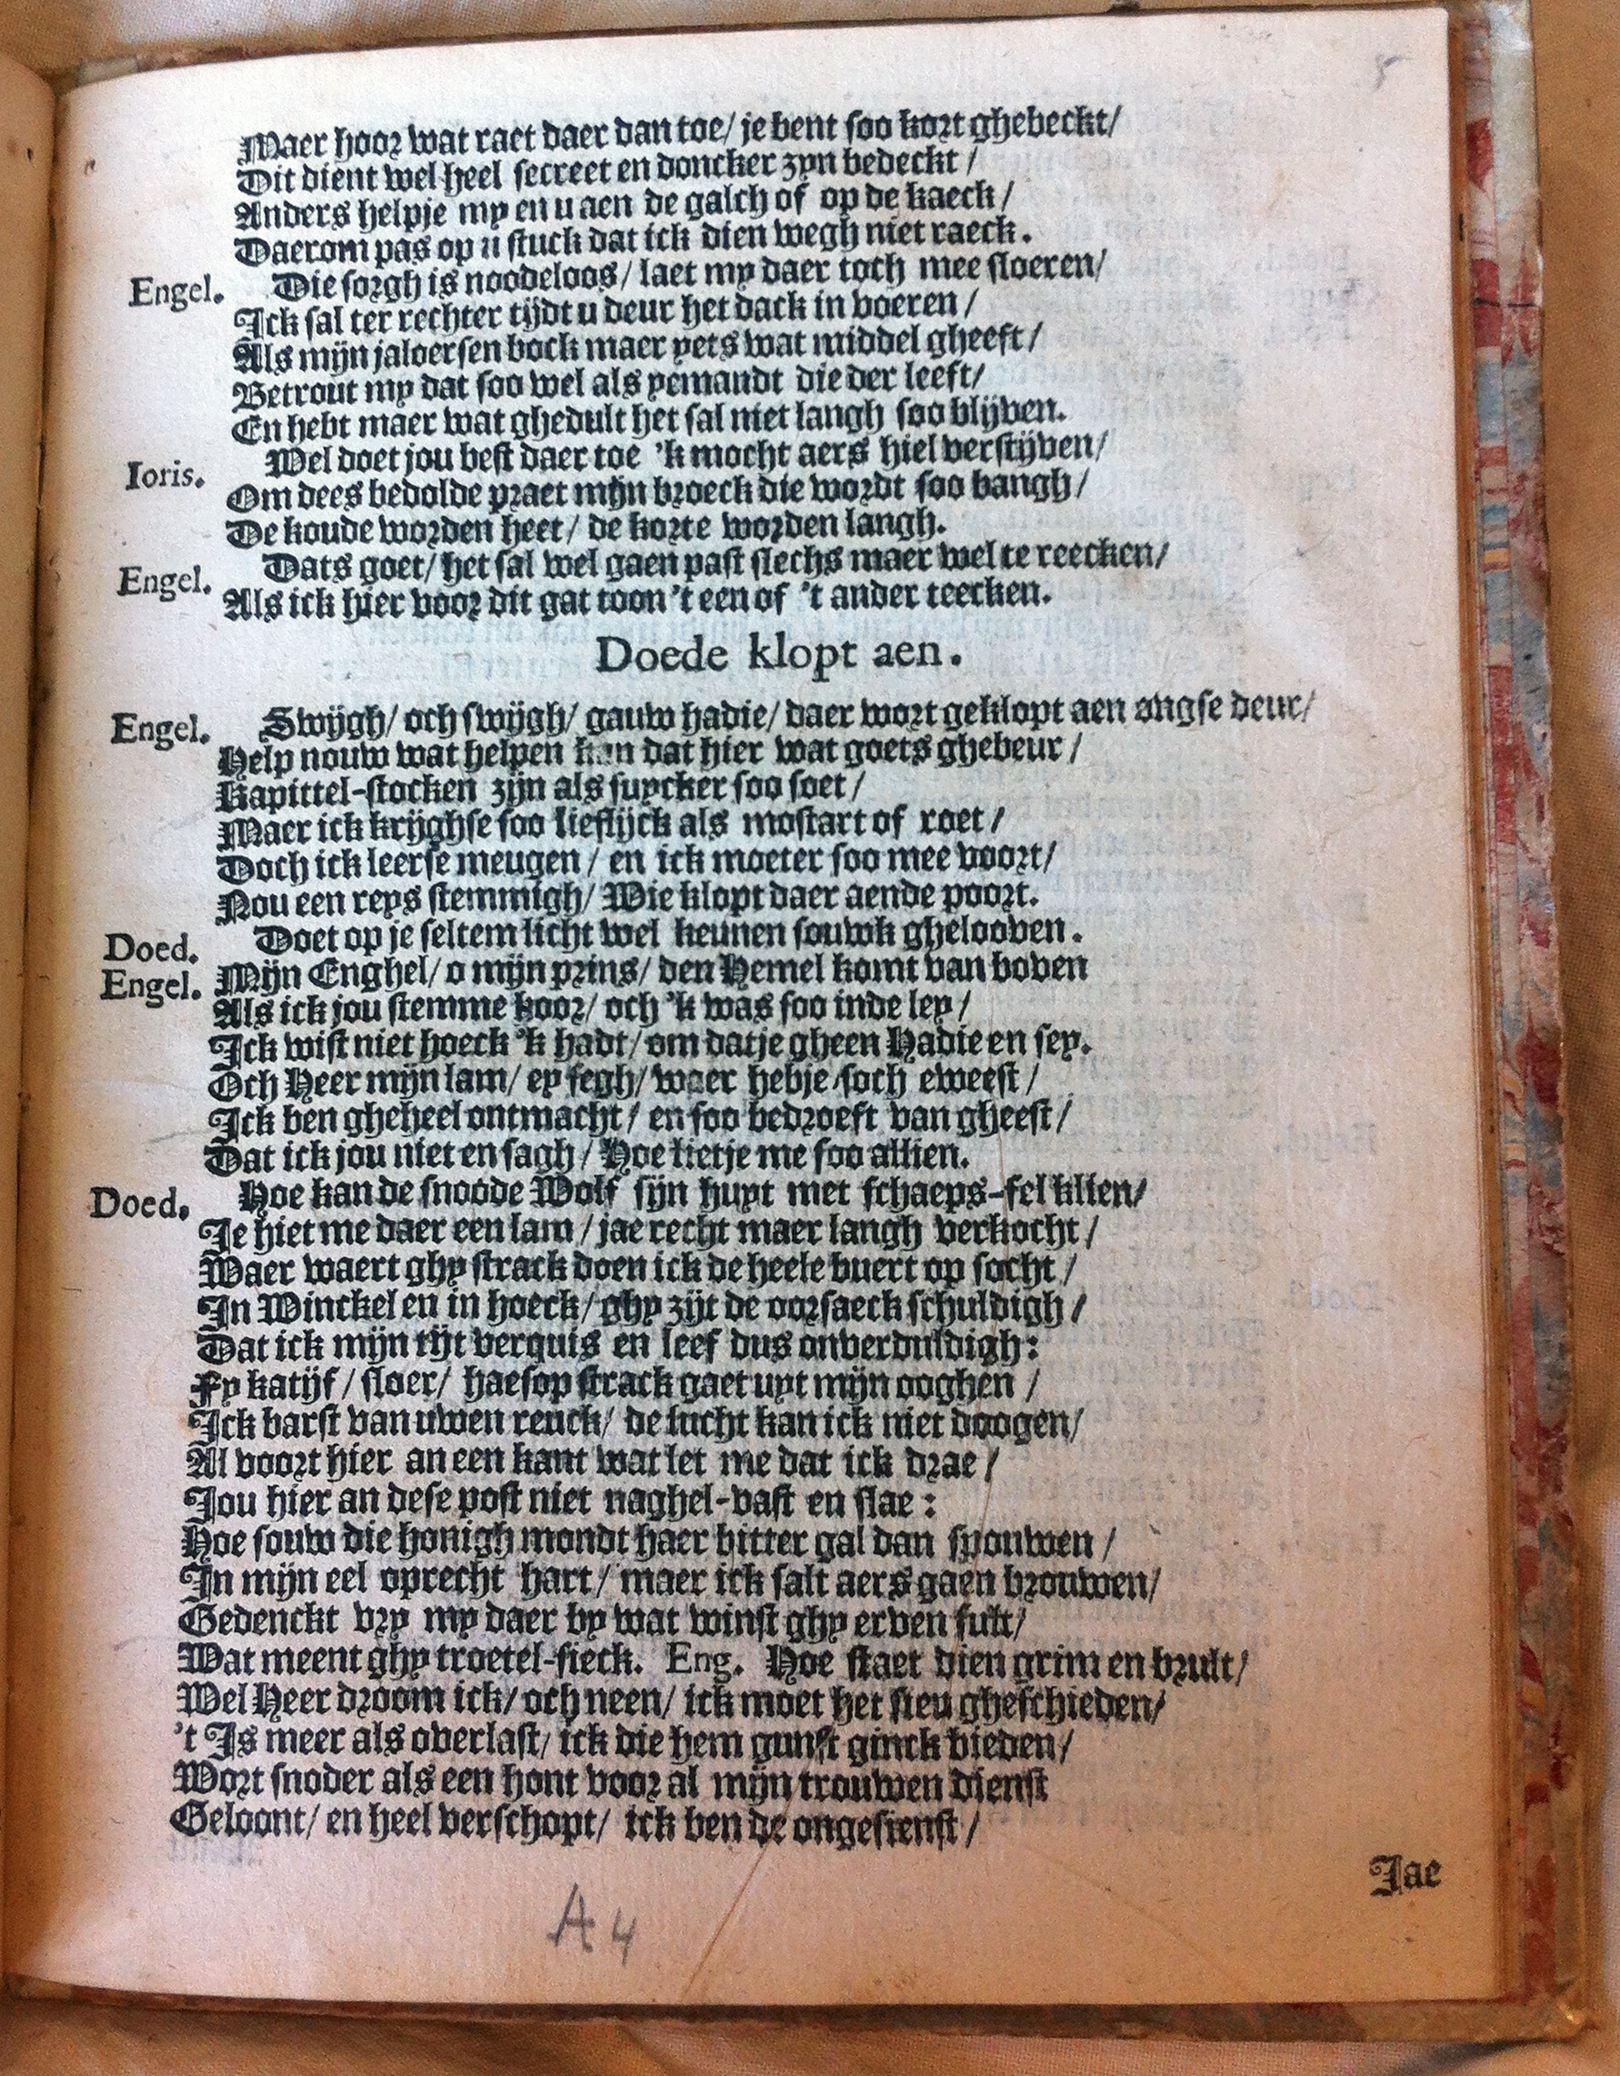 5
Maer hoor wat raet daer dan toe/ je bent soo kort ghebeckt/
Dit dient wel heel secreet en doncker zyn bedeckt/
Anders helpje my en u aen de galch of op de kaeck/
Daerom pas op u stuck dat ick dien wegh niet raeck.
Engel. Die sorgh is noodeloos/ laet my daer toch mee sloeren/
Ick sal ter rechter tijdt u deur het dack in voeren/
Als mijn jaloersen bock maer yets wat middel gheeft/
Betrout my dat soo wel als yemandt die der leeft/
En hebt maer wat ghedult het sal niet langh soo blijven.
Ioris. Wel doet jou best daer toe 'k mocht aers hiel verstijven/
Om dees bedolde praet mijn broeck die wordt soo bangh/
De koude worden heet/ de korte worden langh.
Engel. Dats goet/ het sal wel gaen past slechs maer wel te reecken/
Als ick hier voor dit gat toon 't een of 't ander teecken.
Doede klopt aen.
Engel. Swijgh/ och swijgh/ gauw hadie/ daer wort geklopt aen ongse deur/
Help nouw wat helpen kan dat hier wat goets ghebeur/
Kapittel-stocken zijn als suycker soo soet/
Maer ick krijghse soo lieflijck als mostart of roet/
Doch ick leerse meugen/ en ick moeter soo mee voort/
Nou een reys stemmigh/ Wie klopt daer aende poort.
Doed. Doet op je seltem licht wel keunen souwk ghelooven.
Engel. Mijn Enghel/ o mijn prins/ den Hemel komt van boven
Als ick jou stemme hoor/ och 'k was soo inde ley/
Ick wist niet hoeck 'k hadt/ om datje gheen Hadie en sey.
Och Heer mijn lam/ ey segh/ waer hebje toch eweest/
Ick ben gheheel ontmacht/ en soo bedroeft van gheest/
Dat ick jou niet en sagh/ Hoe lietje me soo allien.
Doed. Hoe kan de snoode Wolf sijn huyt met schaeps-fel klien/
Je hiet me daer een lam/ jae recht maer langh verkocht/
Waer waert ghy strack doen ick de heele buert op socht/
In Winckel en in hoeck/ ghy zijt de oorsaeck schuldigh/
Dat ick mijn tijt verquis en leef dus onverduldigh:
Fy katijf/ sloer/ haesop strack gaet uyt mijn ooghen/
Ick barst van uwen reuck/ de lucht kan ick niet doogen/
Al voort hier an een kant wat let me dat ick drae/
Jou hier an dese post niet naghel-vast en slae:
Hoe souw die honigh mondt haer bitter gal dan spouwen/
In mijn eel oprecht hart/ maer ick salt aers gaen brouwen/
Gedenckt vry my daer by wat winst ghy erven sult/
Wat meent ghy troetel-sieck. Eng. Hoe staet dien grim en brult/
Wel Heer droom ick/ och neen/ ick moet het sieu gheschieden/
't Is meer als overlast/ ick die hem gunst ginck bieden/
Wort snoder als een hont voor al mijn trouwen dienst
Geloont/ en heel verschopt/ ick ben de ongesienst/
Jae
A 4